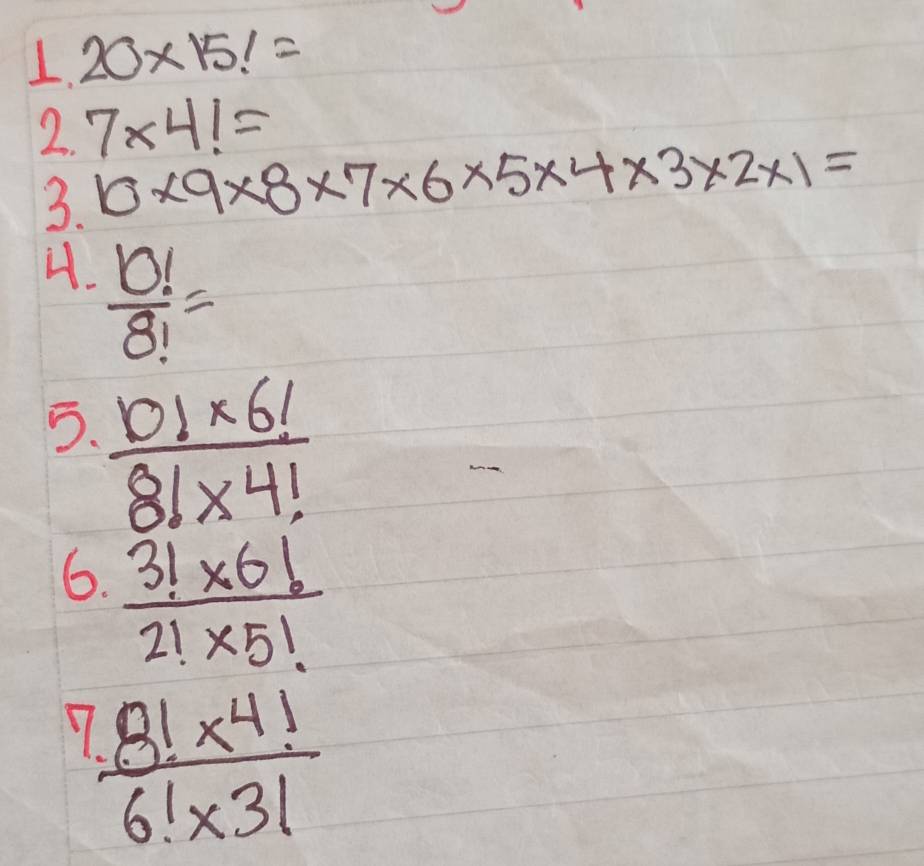 1. 20×15! =
2. 7×4! =
3. 10×9×8×7×6×5×4×3×2×1 =
4. 10!
8! =
5. 10! × 6!
8! × 4!
6. 3! × 6!
2! × 5!
7. 8! × 4!
6! × 3!